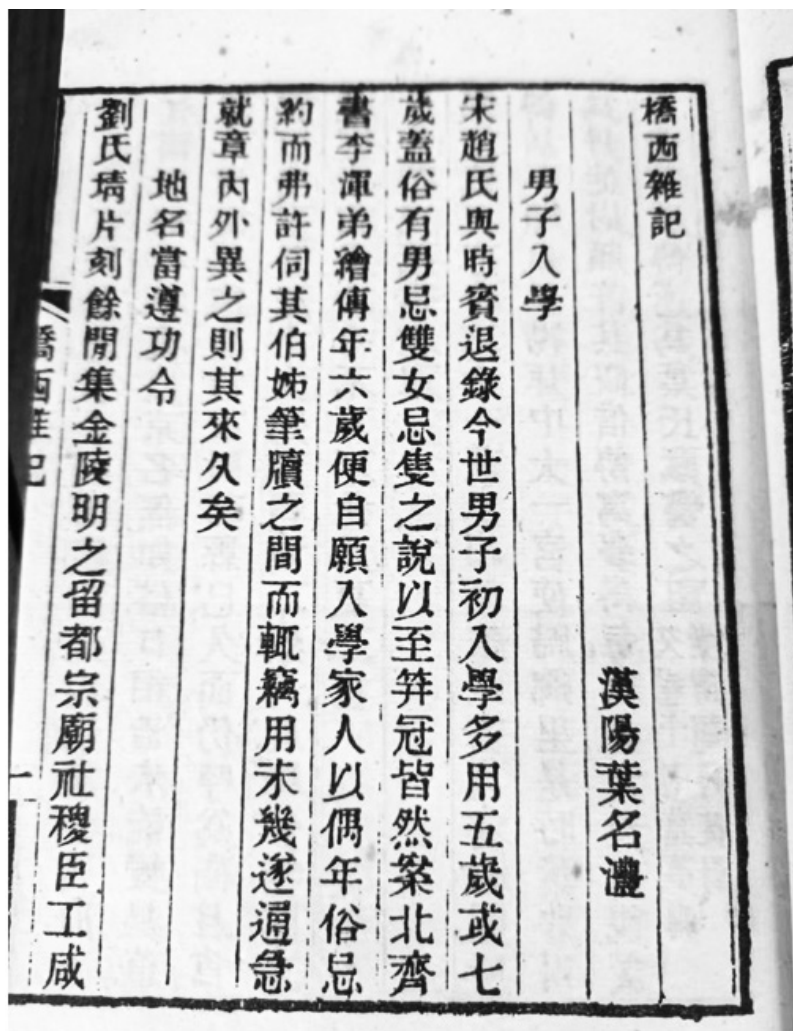 橋西雜記
漢陽葉名灃
男子入學
宋趙氏與時賓退錄今世男子初入學多用五歲或七
歲蓋俗有男忌雙女忌隻之說以至笄冠皆然案北齊
書李渾弟繪傳年六歲便自願入學家人以偶年俗忌
約而弗許伺其伯姊筆牘之間而輒竊用未幾遂通急
就章內外異之則其來久矣
地名當遵功令
劉氏瑃片刻餘閒集金陵明之留都宗廟社稷臣工咸
橋西雜記
一